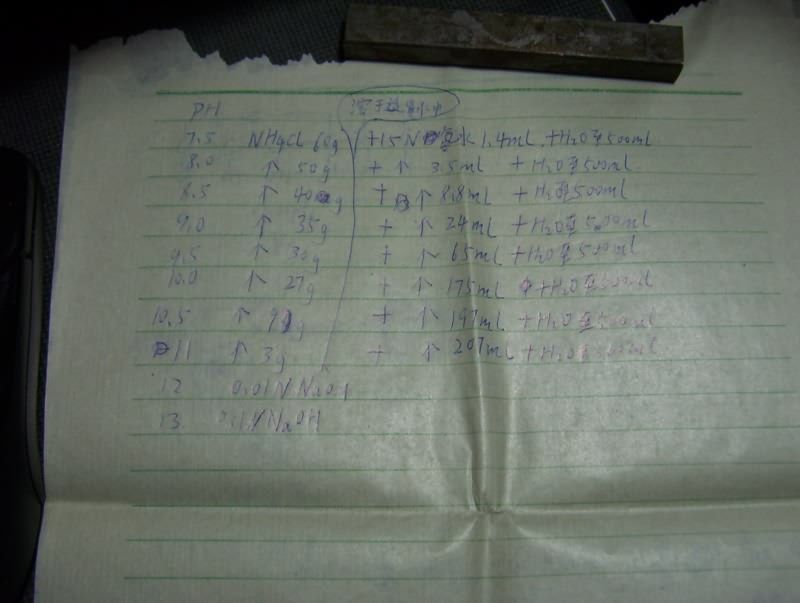 PH 溶于适量水中
7.5 NH4Cl 60g +15N氨水1.4ml +H2O至500ml
8.0 ↑ 50g + ↑ 3.5ml +H2O至500ml
8.5 ↑ 40g + ↑ 8.8ml +H2O至500ml
9.0 ↑ 35g + ↑ 24ml +H2O至500ml
9.5 ↑ 30g + ↑ 65ml +H2O至500ml
10.0 ↑ 27g + ↑ 175ml +H2O至500ml
10.5 ↑ 9g + ↑ 197ml +H2O至500ml
11 ↑ 3g + ↑ 207ml +H2O至500ml
12 0.01N NaOH
13 0.1N NaOH